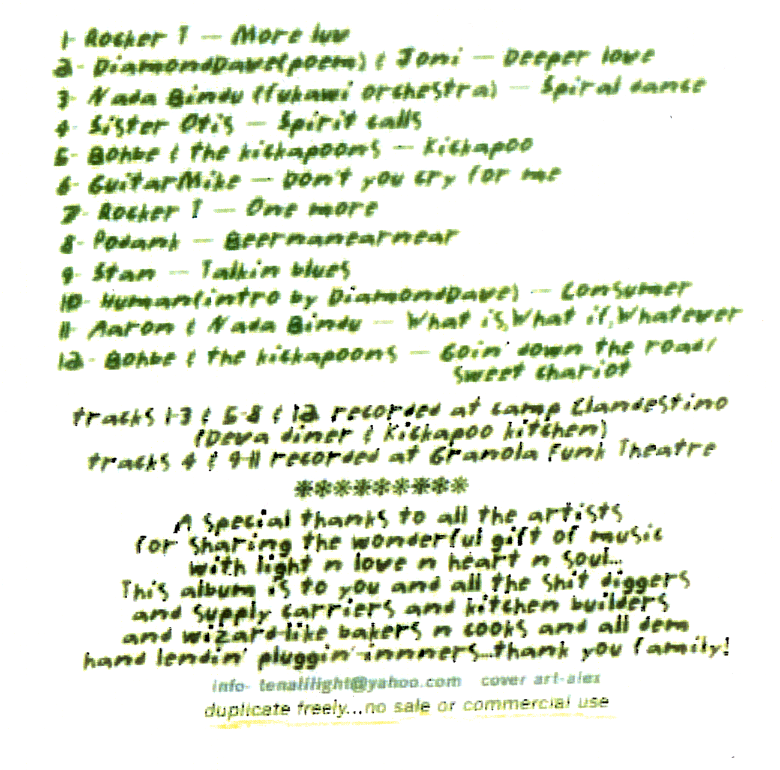 1- Rocker T — More luv
2- DiamondDave(poem) & Joni — Deeper love
3- Nada Bindu (fukawi orchestra) — Spiral dance
4- Sister Otis — Spirit calls
5- Bohbe & the kickapoons — Kickapoo
6- GuitarMike — Don't you cry for me
7- Rocker T — One more
8- Podank — Beernanearnear
9- Stan — Talkin blues
10- Human(intro by DiamondDave) — Consumer
11- Aaron & Nada Bindu — What is,What if,Whatever
12- Bohbe & the kickapoons — Goin' down the road/
Sweet chariot
tracks 1-3 & 5-8 & 12 recorded at camp Clandestino
(Deva diner & Kickapoo kitchen)
tracks 4 & 9-11 recorded at Granola Funk Theatre
*********
A Special thanks to all the artists
for sharing the wonderful gift of music
with light n love n heart n soul...
This album is to you and all the shit diggers
and supply carriers and kitchen builders
and wizard-like bakers n cooks and all dem
hand lendin' pluggin'-innners...thank you family!
info- tenalilight@yahoo.com cover art-alex
duplicate freely...no sale or commercial use